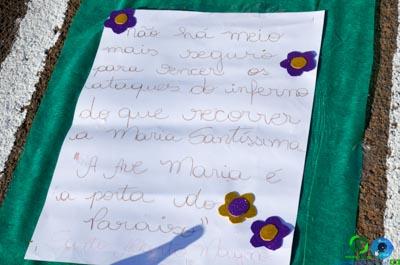 não há meio
mais seguro
para vencer os
ataques do inferno
do que recorrer
a Maria Santíssima
"A Ave Maria é
a porta do
Paraíso"